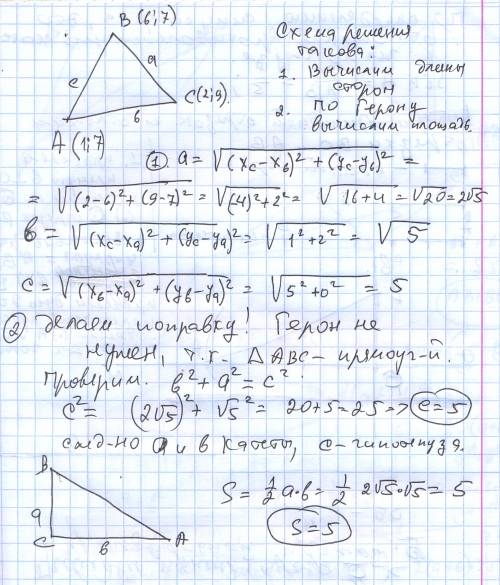 B (6; 7)
c
a
C(2; 9).
A (1; 7)
b
Схема решения
такова:
1. Вычислим длины
сторон
2. По Герону
вычислим площадь.
① a = √((xc-xb)² + (yc-yb)²) =
= √((2-6)² + (9-7)²) = √((4)²+2²) = √(16+4) = √20 = 2√5
b = √((xc-xa)² + (yc-ya)²) = √(1²+2²) = √5
c = √((xb-xa)² + (yb-ya)²) = √(5²+0²) = 5
② Делаем поправку! Герон не
нужен, т.к. △ABC - прямоуг-й.
Проверим. b² + a² = c²
c² = (2√5)² + √5² = 20+5=25 => c=5
след-но a и b катеты, c-гипотенуза.
B
a
C
b
A
S = 1/2 a·b = 1/2 2√5·√5 = 5
S=5